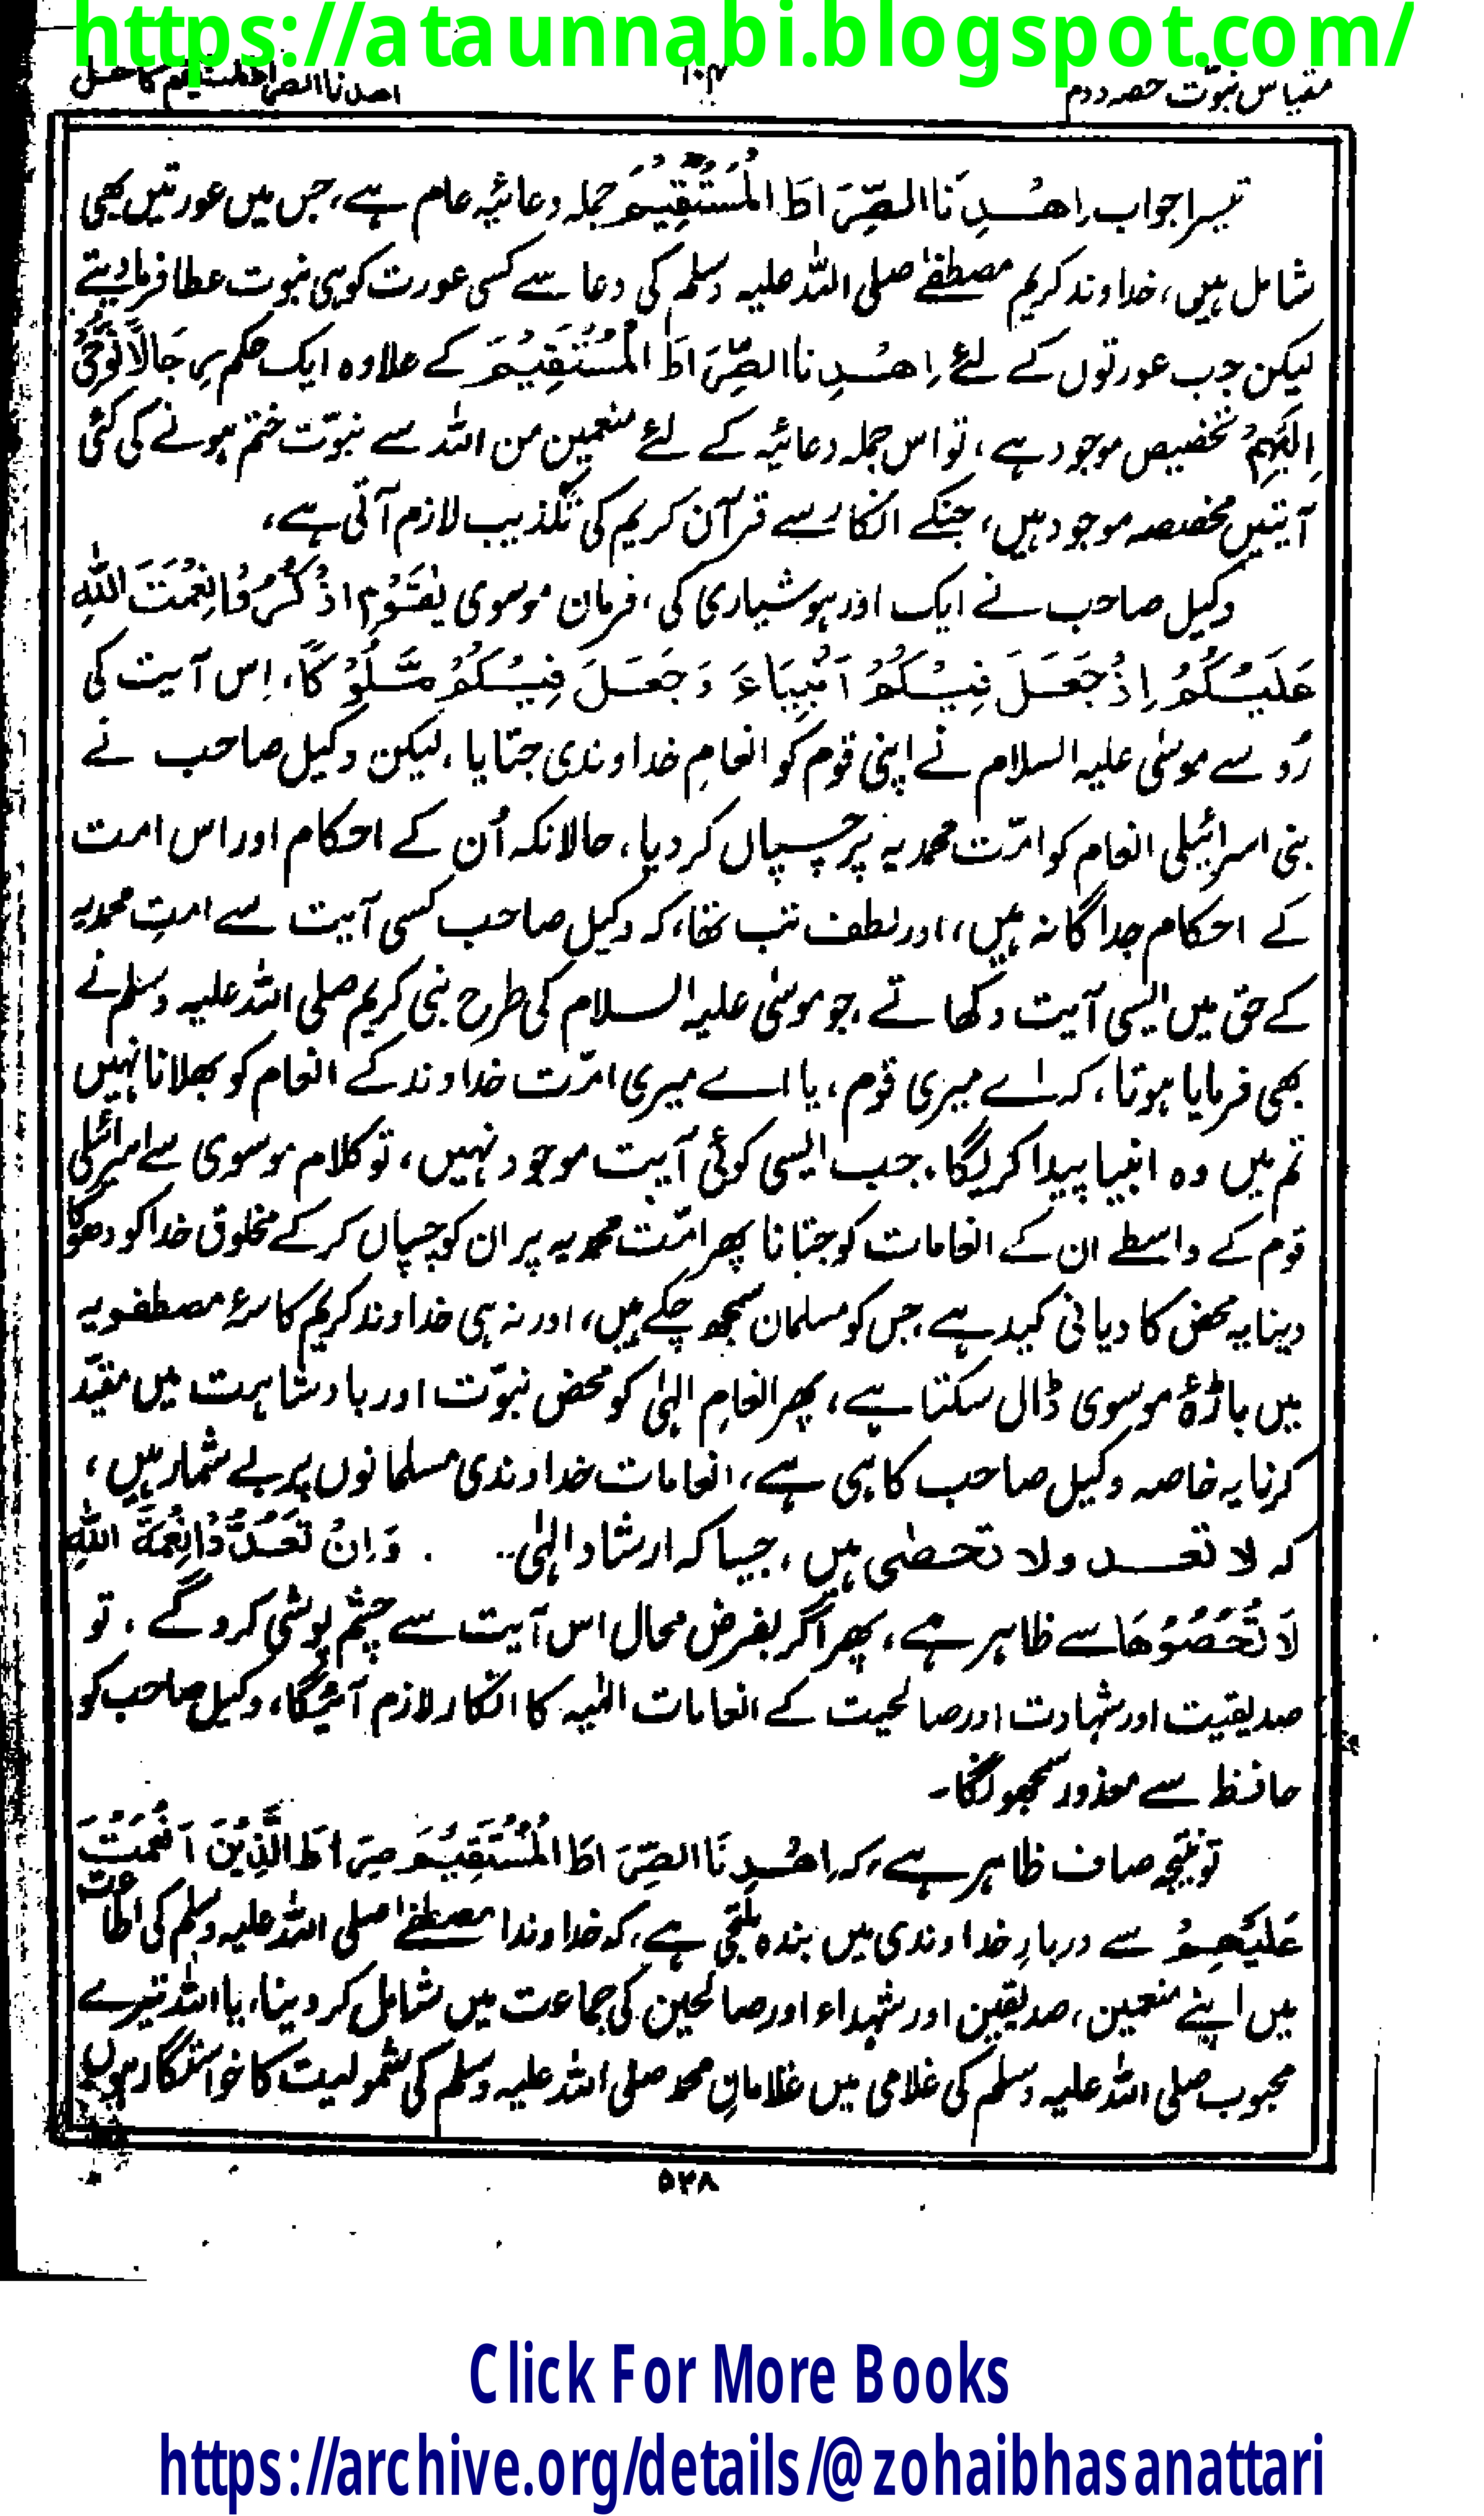 https://ataunnabi.blogspot.com/
مقیاس نبوّت حصہ دوم
اھدنا الصراط المستقیم کا حل
تیسرا جواب اِھْدِنَا الصِّرَاطَ الْمُسْتَقِیْمَ جملہ دعائیہ عام ہے، جس میں عورتیں بھی
شامل ہیں، خداوند کریم مصطفےٰ صلی اللہ علیہ وسلم کی دعا سے کسی عورت کو ہی نبوت عطا فرما دیتے
لیکن جب عورتوں کے لئے اِھْدِنا الصِّرَاطَ الْمُسْتَقِیْمَ کے علاوہ ایک حکم رِجَالًا نُّوْحِیْ
اِلَیْهِمْ تخصیص موجود ہے، تو اس جملہ دعائیہ کے لئے منعمین من اللہ سے نبوّت ختم ہونے کی کئی
آیتیں مخصصہ موجود ہیں، جنکے انکار سے قرآن کریم کی تکذیب لازم آتی ہے،
وکیل صاحب نے ایک اور ہوشیاری کی، فرمان موسوی یٰقَوْمِ اذْکُرُوْا نِعْمَتَ اللهِ
عَلَیْکُمْ اِذْ جَعَلَ فِیْکُمْ اَنْبِیَاءَ وَ جَعَلَ فِیْکُمْ مُّلُوْکًا، اِس آیت کی
رُو سے موسٰی علیہ السلام نے اپنی قوم کو انعامِ خداوندی جتایا، لیکن وکیل صاحب نے
بنی اسرائیلی انعام کو امّت محمدیہ پر چسپاں کر دیا، حالانکہ اُن کے احکام اور اس امت
کے احکام جداگانہ ہیں، اور لطف تب تھا، کہ وکیل صاحب کسی آیت سے امتِ محمدیہ
کے حق میں ایسی آیت دکھاتے، جو موسٰی علیہ السلام کی طرح نبی کریم صلی اللہ علیہ وسلم نے
بھی فرمایا ہوتا، کہ اے میری قوم، یا اے میری امّت خداوند کے انعام کو بھلانا نہیں
تم میں وہ انبیا پیدا کریگا، جب ایسی کوئی آیت موجود نہیں، تو کلام موسوی سے اسرائیلی
قوم کے واسطے ان کے انعامات کو جتانا پھر امّت محمدیہ پر ان کو چسپاں کر کے مخلوق خدا کو دھوکا
دینا یہ محض کادیانی کید ہے، جس کو مسلمان سمجھ چکے ہیں، اور نہ ہی خداوند کریم کاسۂ مصطفویہ
میں باڑۂ موسوی ڈال سکتا ہے، پھر انعامِ الٰہی کو محض نبوّت اور بادشاہت میں مقیّد
کرنا یہ خاصہ وکیل صاحب کا ہی ہے، انعامات خداوندی مسلمانوں پر بے شمار ہیں،
کہ لا تعد ولا تحصٰی ہیں، جیسا کہ ارشاد الٰہی .. . وَاِنْ تَعُدُّوْا نِعْمَةَ اللهِ
لَا تُحْصُوْهَا سے ظاہر ہے، پھر اگر بفرض محال اس آیت سے چشم پوشی کرو گے، تو
صدیقیت اور شہادت اور صالحیت کے انعامات الٰہیہ کا انکار لازم آئیگا، وکیل صاحب کو
حافظ سے معذور سمجھونگا۔
تو نتیجہ صاف ظاہر ہے، کہ اِھْدِنَا الصِّرَاطَ الْمُسْتَقِیْمَ صِرَاطَ الَّذِیْنَ اَنْعَمْتَ
عَلَیْهِمْ سے دربارِ خداوندی میں بندہ ملتجی ہے، کہ خداوندا مصطفےٰ صلی اللہ علیہ وسلم کی اطاعت
میں اپنے منعمین، صدیقین اور شہداء اور صالحین کی جماعت میں شامل کر دینا، یا اللہ تیرے
محبوب صلی اللہ علیہ وسلم کی غلامی میں غلامانِ محمد صلی اللہ علیہ وسلم کی شمولیت کا خواستگار ہوں
۵۳۸
Click For More Books
https://archive.org/details/@zohaibhasanattari